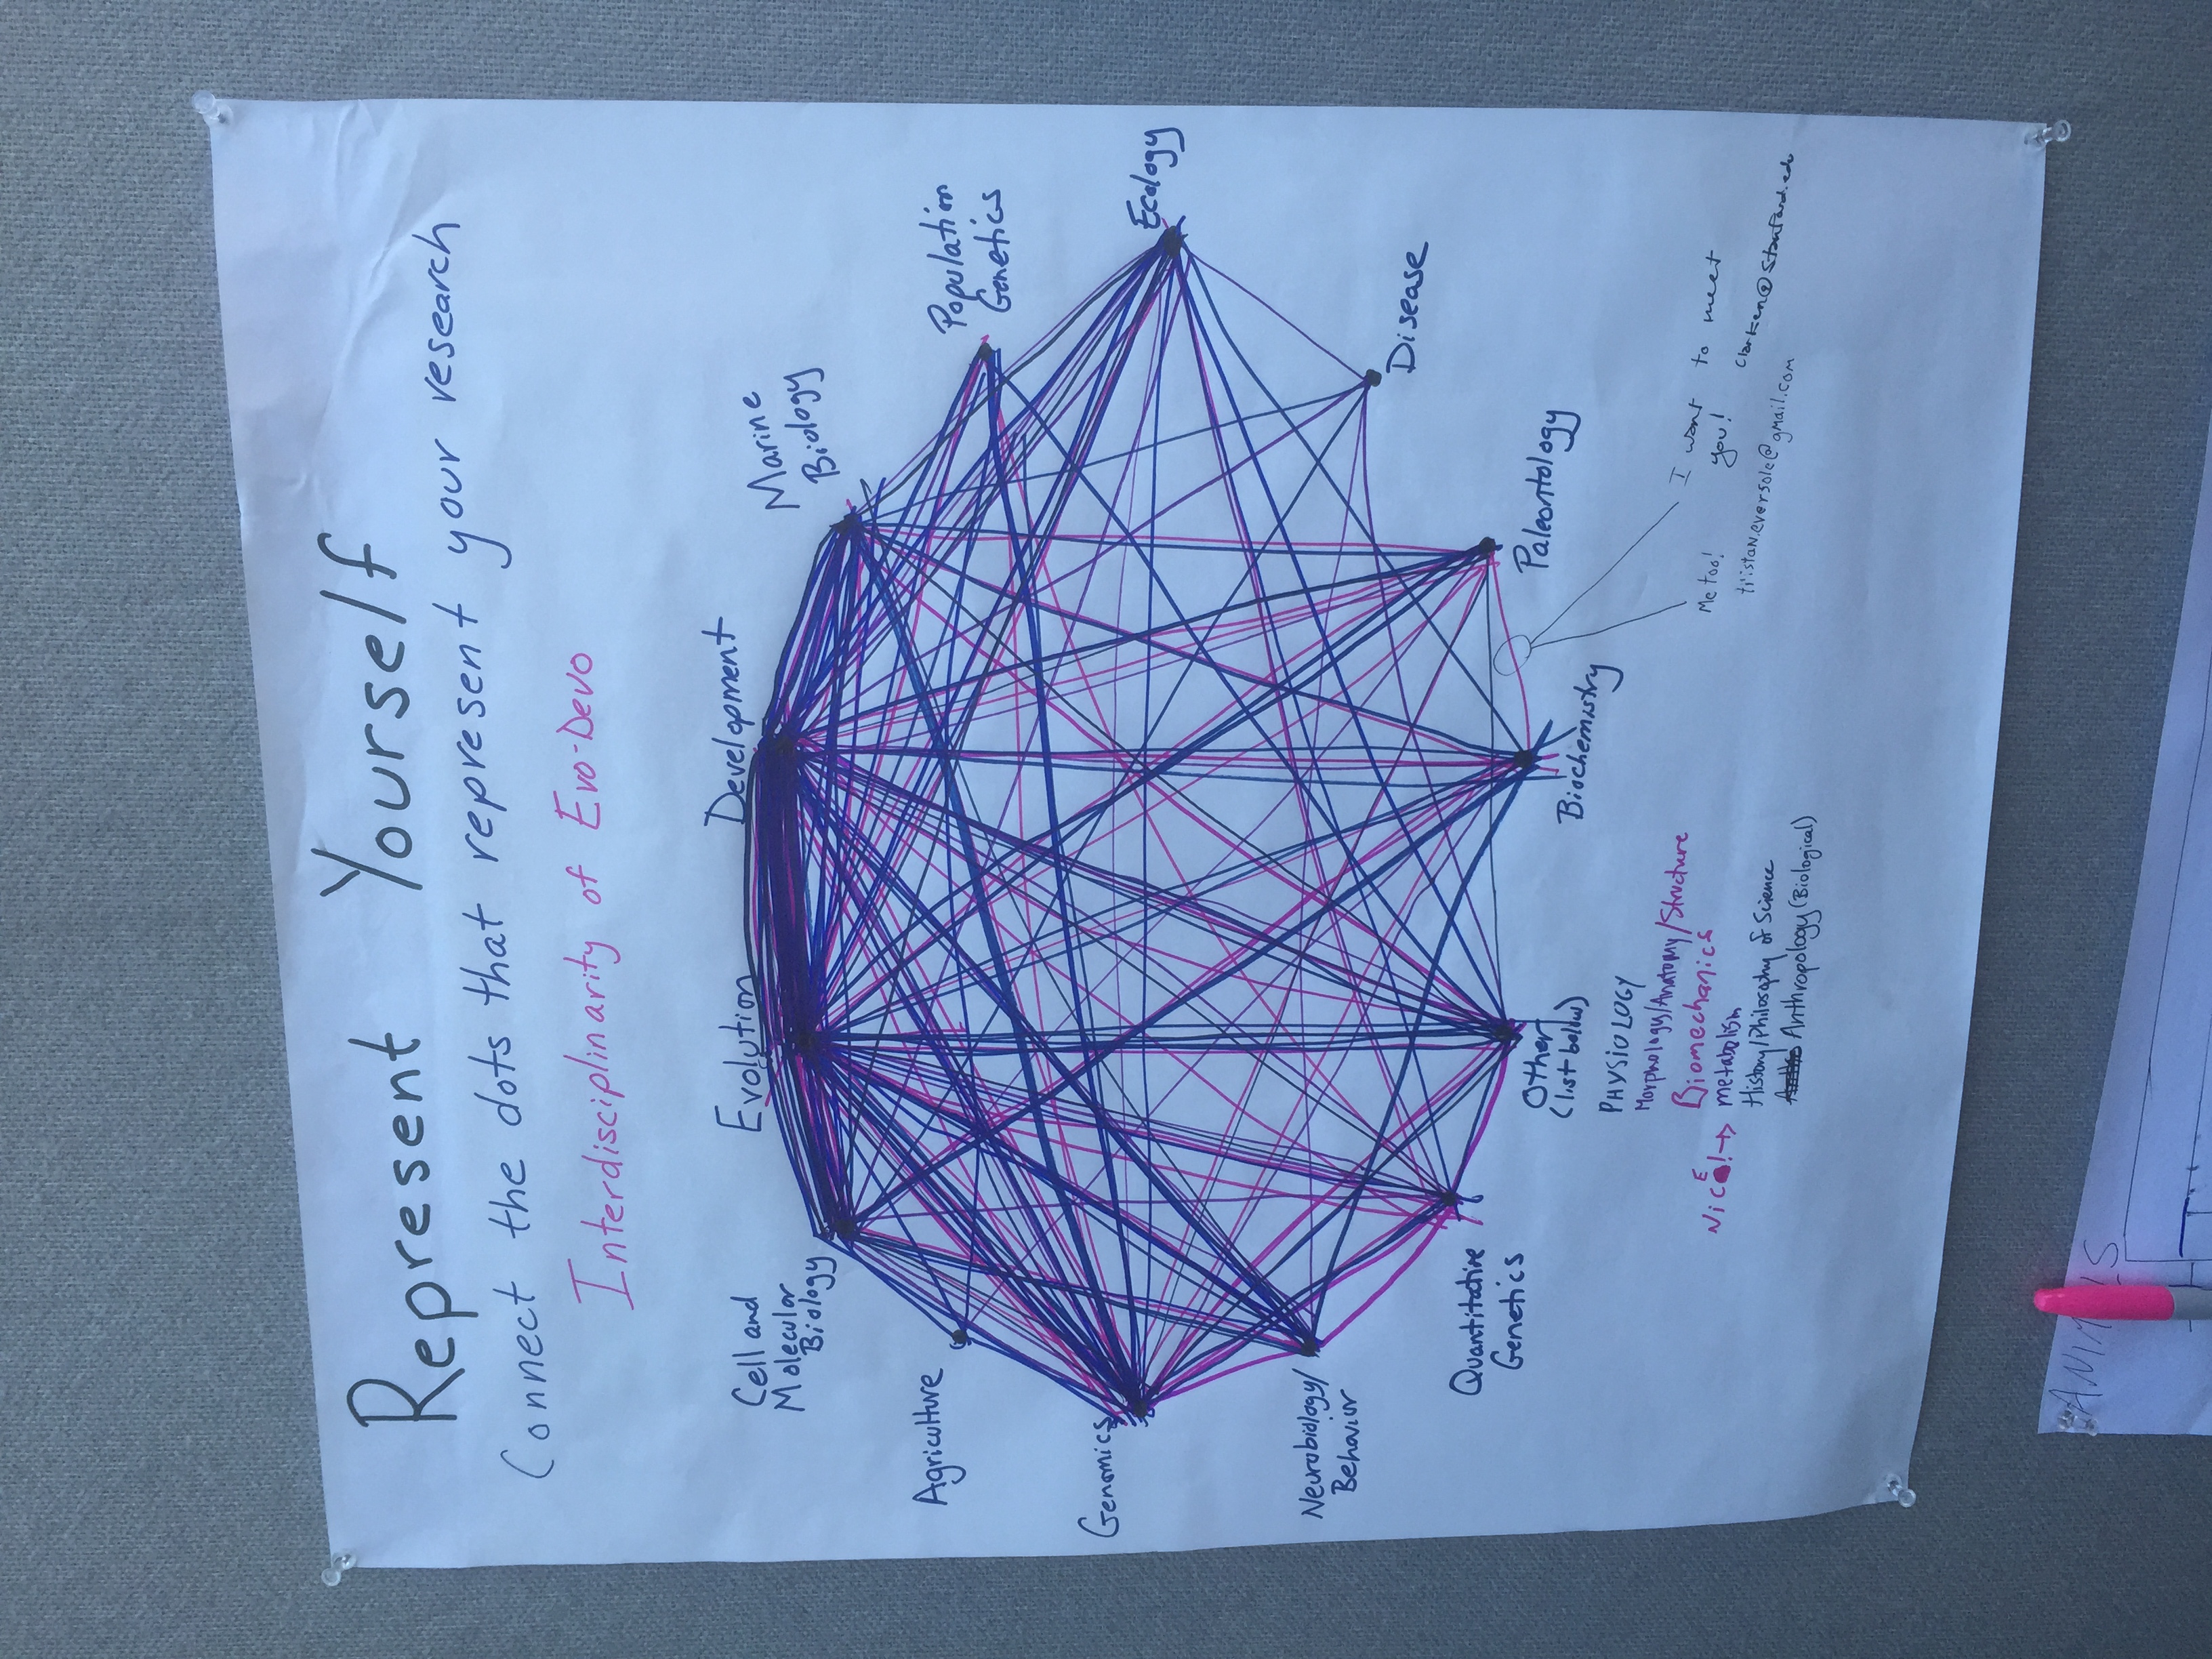 Represent Yourself
Connect the dots that represent your research
Interdisciplinarity of Evo-Devo
Evolution
Development
Cell and
Molecular
Biology
Marine
Biology
Agriculture
Population
Genetics
Genomics
Ecology
Neurobiology/
Behavior
Disease
Quantitative
Genetics
Paleontology
Other
(list below)
Biochemistry
PHYSIOLOGY
Morphology/Anatomy/Structure
Biomechanics
NicE!→ metabolism
History/Philosophy of Science
Anthropology (Biological)
I want to meet
you!
Me too!
tristan.eversole@gmail.com
ANIMALS